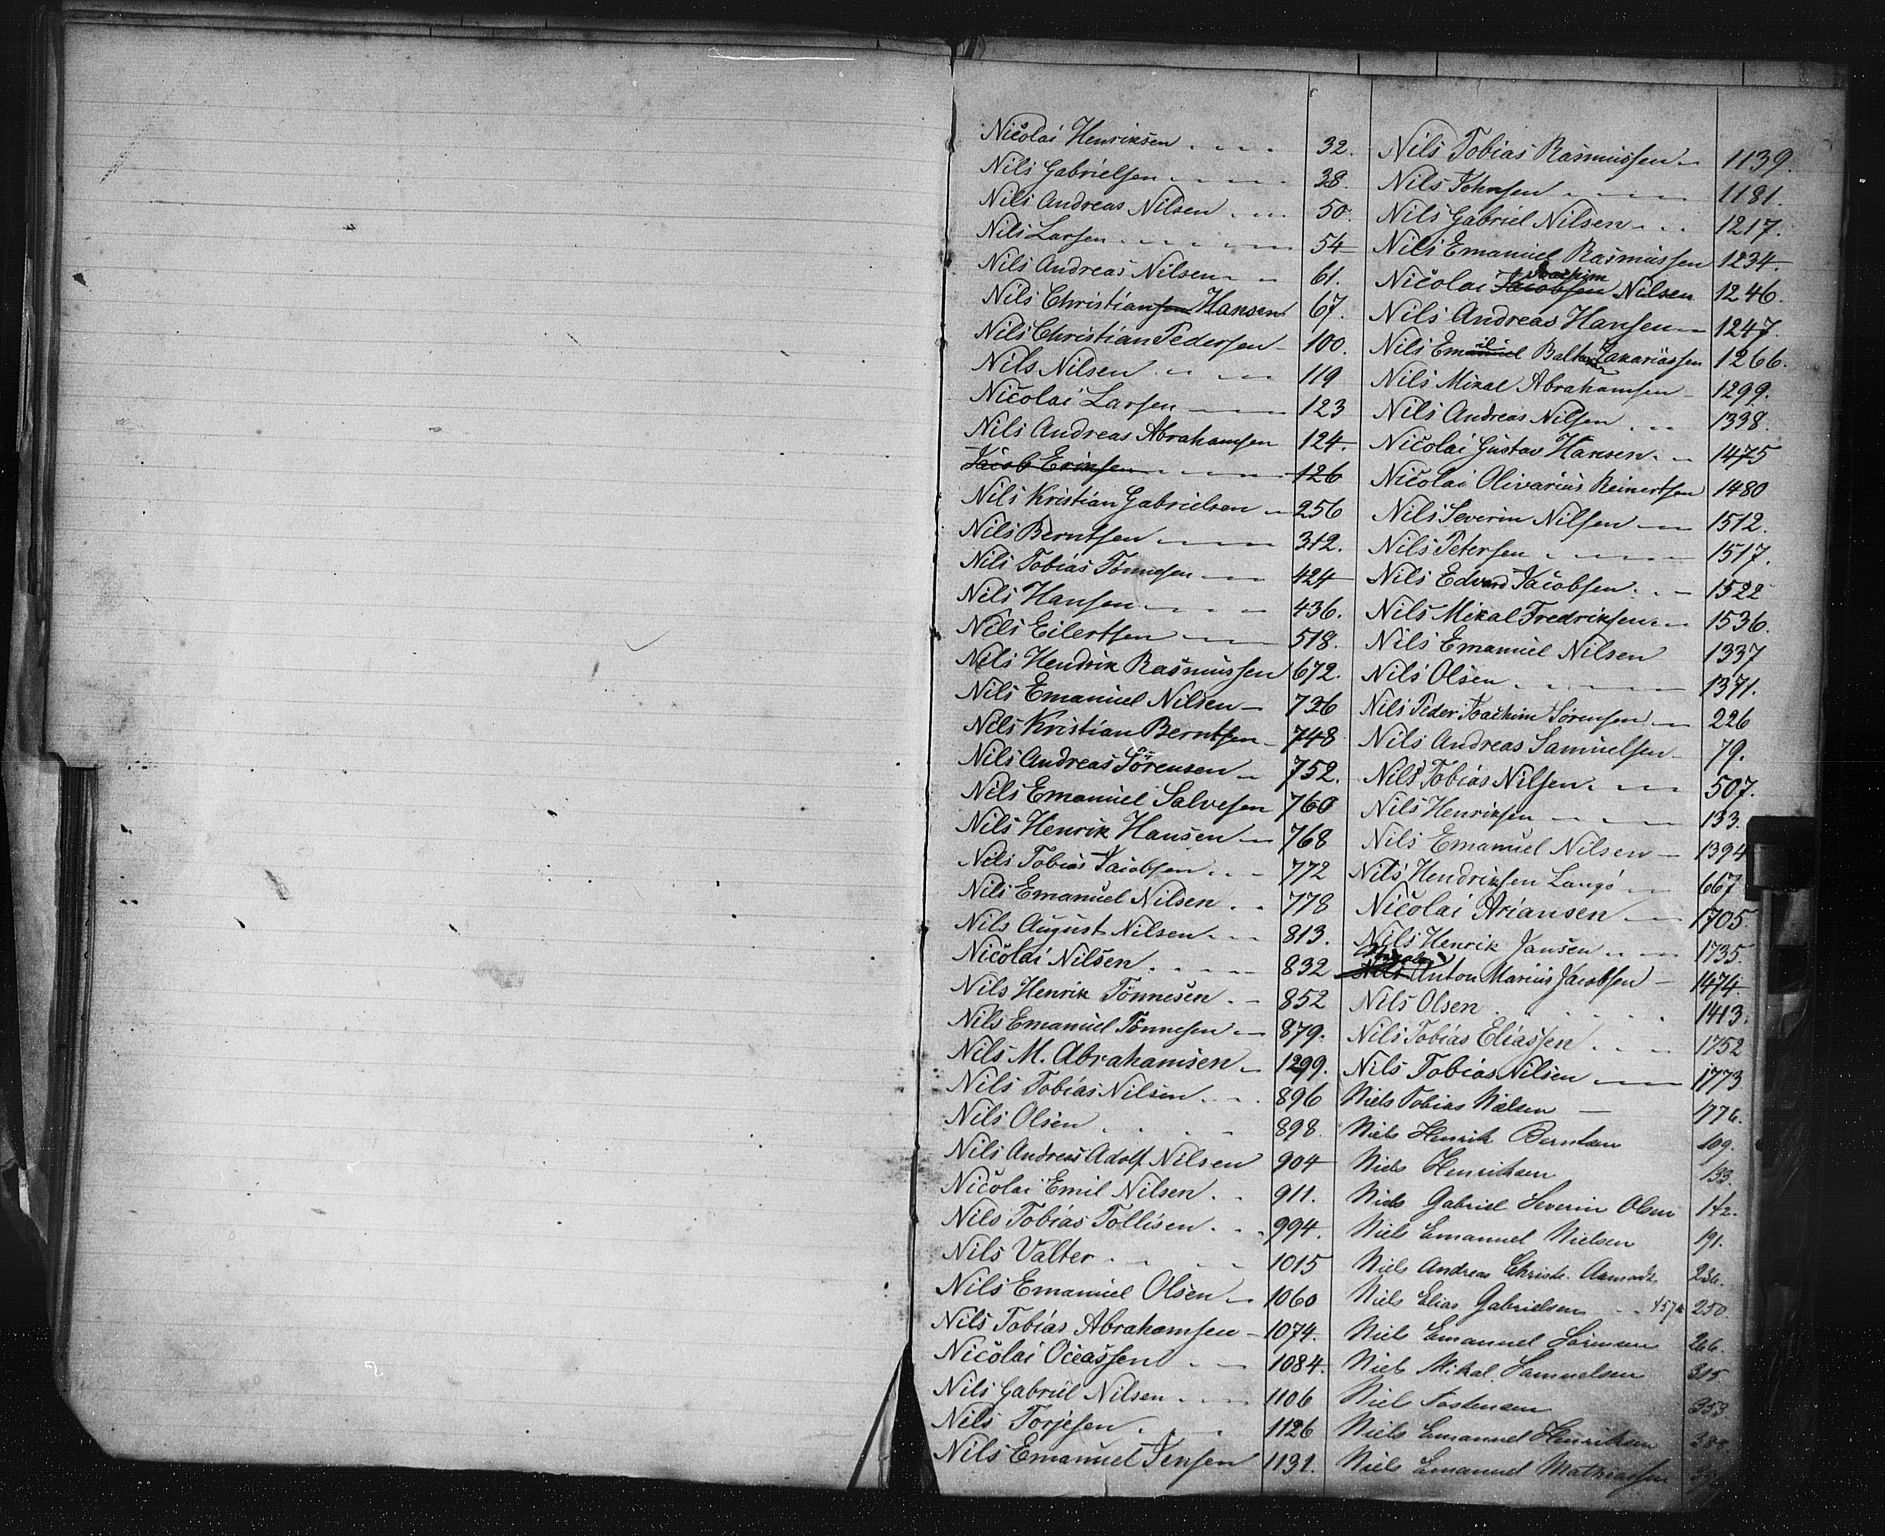 Nicolai Henriksen 32.
Nils Gabrielsen 38.
Nils Andreas Nilsen 50.
Nils Larsen 54
Nils Andreas Nilsen 61.
Nils Christiansen Hansen 67.
Nils Christian Pedersen 100.
Nils Nilsen 119
Nicolai Larsen 123
Nils Andreas Abrahamsen 124.
Jacob Eriksen 126
Nils Kristian Gabrielsen 256
Nils Berntsen 312.
Nils Tobias Tønnesen 424
Nils Hansen 436.
Nils Eilertsen 518.
Nils Hendrik Rasmussen 672.
Nils Emanuel Nilsen 726
Nils Kristian Berntsen 748
Nils Andreas Sørensen 752.
Nils Emanuel Salvesen 760
Nils Henrik Hansen 768
Nils Tobias Jacobsen 772
Nils Emanuel Nilsen 778
Nils August Nilsen 813.
Nicolai Nilsen 832
Nils Henrik Tønnesen 852
Nils Emanuel Tønnesen 879.
Nils M. Abrahamsen 1299.
Nils Tobias Nilsen 896
Nils Olsen 898.
Nils Andreas Adolf Nilsen 904
Nicolai Emil Nilsen 911.
Nils Tobias Tollisen 994.
Nils Valter 1015
Nils Emanuel Olsen 1060
Nils Tobias Abrahamsen 1074.
Nicolai Oceassen 1084.
Nils Gabriel Nilsen 1106
Nils Torjesen 1126
Nils Emanuel Jensen 1131.
Nils Tobias Rasmussen 1139.
Nils Johnsen 1181.
Nils Gabriel Nilsen 1217.
Nils Emanuel Rasmussen 1234.
Joachim
Nicolai Jacobsen Nilsen 1246.
Nils Andreas Hansen 1247
Nils Emanuel Zakariassen 1266.
Nils Mikal Abrahamsen 1299.
Nils Andreas Nilsen 1338.
Nicolai Gustav Hansen 1475
Nicolai Olivarius Reinertsen 1480
Nils Severin Nilsen 1512.
Nils Petersen 1517.
Nils Edvard Jacobsen 1522
Nils Mikal Fredriksen 1536.
Nils Emanuel Nilsen 1337
Nils Olsen 1371.
Nils Peder Joachim Sørensen 226
Nils Andreas Samuelsen 79.
Nils Tobias Nilsen 507.
Nils Henriksen 133.
Nils Emanuel Nilsen 1394
Nils Hendriksen Langø 667
Nicolai Ariansen 1705.
Nils Henrik Jansen 1735.
Nils Anton Marius Jacobsen 1474
Nils Olsen 1413.
Nils Tobias Eliassen 1752
Nils Tobias Nilsen 1773
Niels Tobias Nielsen 1776.
Niels Henrik Berntsen 109.
Niels Henriksen 133.
Niels Gabriel Severin Olsen 142.
Niels Emanuel Nielsen 191.
Niels Andreas Christ. Aamodt 236.
Niels Elias Gabrielsen 457 250.
Niels Emanuel Sørensen 266.
Niels Mikal Samuelsen 315
Niels Tostensen 353
Niels Emanuel Henriksen
Niels Emanuel Mathiassen